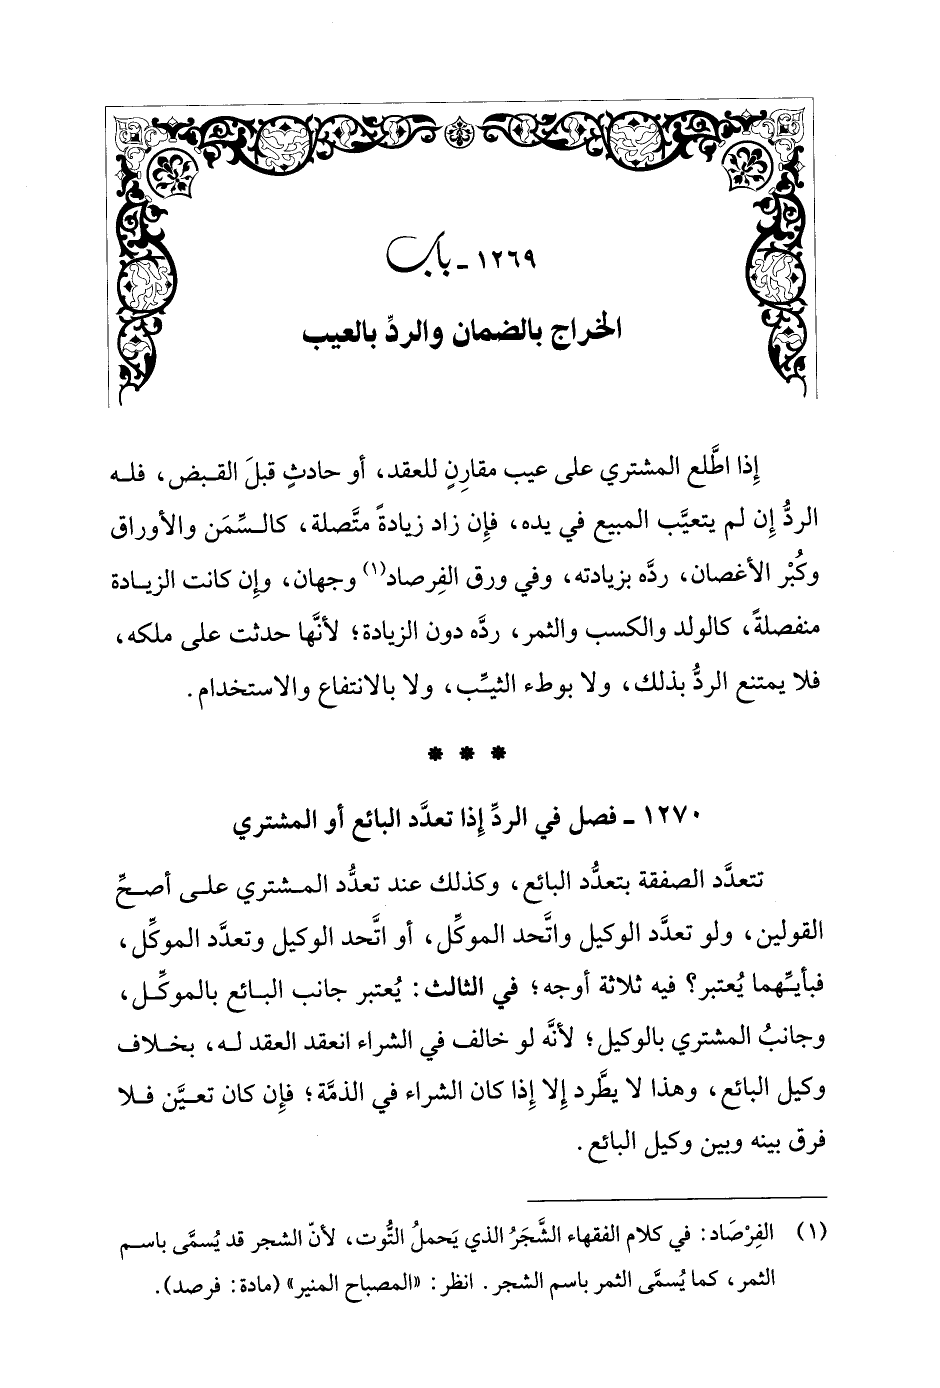 ١٢٦٩ - باب
الخراج بالضمان والردِّ بالعيب
إِذا اطَّلع المشتري على عيب مقارنٍ للعقد، أو حادثٍ قبلَ القبض، فله
الردُّ إِن لم يتعيَّب المبيع في يده، فإِن زاد زيادةً متَّصلة، كالسِّمَن والأوراق
وكُبْر الأغصان، ردَّه بزيادته، وفي ورق الفِرصاد(١) وجهان، وإِن كانت الزيادة
منفصلةً، كالولد والكسب والثمر، ردَّه دون الزيادة؛ لأنَّها حدثت على ملكه،
فلا يمتنع الردُّ بذلك، ولا بوطء الثيِّب، ولا بالانتفاع والاستخدام.
* * *
١٢٧٠ - فصل في الردِّ إِذا تعدَّد البائع أو المشتري
تتعدَّد الصفقة بتعدُّد البائع، وكذلك عند تعدُّد المشتري على أصحِّ
القولين، ولو تعدَّد الوكيل واتَّحد الموكِّل، أو اتَّحد الوكيل وتعدَّد الموكِّل،
فبأيِّهما يُعتبر؟ فيه ثلاثة أوجه؛ في الثالث: يُعتبر جانب البائع بالموكِّل،
وجانبُ المشتري بالوكيل؛ لأنَّه لو خالف في الشراء انعقد العقد له، بخلاف
وكيل البائع، وهذا لا يطَّرد إِلا إِذا كان الشراء في الذمَّة؛ فإِن كان تعيَّن فلا
فرق بينه وبين وكيل البائع.
(١) الفِرْصَاد: في كلام الفقهاء الشَّجَرُ الذي يَحملُ التُّوت، لأنّ الشجر قد يُسمَّى باسم
الثمر، كما يُسمَّى الثمر باسم الشجر. انظر: «المصباح المنير» (مادة: فرصد).